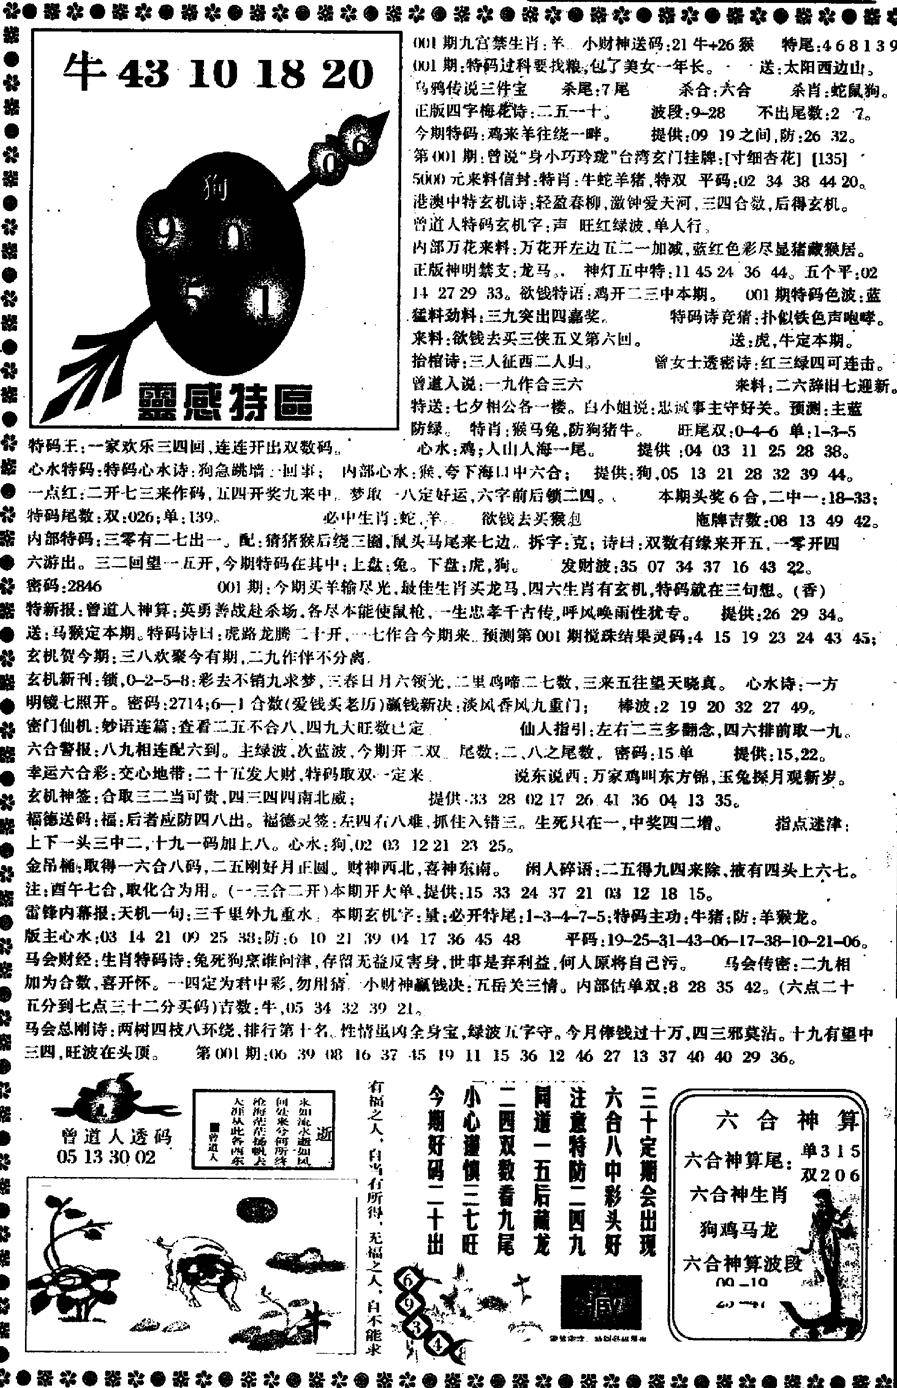 牛 43 10 18 20
狗
0 6
9 0
5 1
靈感特區
001期九宫禁生肖:羊 小财神送码:21牛+26猴 特尾:468139
001期:特码过科要找粮,包了美女一年长。 送:太阳西边山。
乌鸦传说三件宝 杀尾:7尾 杀合:六合 杀肖:蛇鼠狗。
正版四字梅花诗:二五一十。 波段:9-28 不出尾数:2 7。
今期特码:鸡来羊往绕一畔。 提供:09 19之间,防:26 32。
第001期:曾说“身小巧玲珑”台湾玄门挂牌:[寸细杏花] [135]
5000元来料信封:特肖:牛蛇羊猪,特双 平码:02 34 38 44 20。
港澳中特玄机诗:轻盈春柳,激钟爱天河,三四合数,后得玄机。
曾道人特码玄机字:声 旺红绿波,单人行。
内部万花来料:万花开左边五二一加减,蓝红色彩尽显猪藏猴居。
正版神明禁支:龙马。 神灯五中特:11 45 24 36 44。五个平:02
14 27 29 33。欲钱特语:鸡开二三中本期。 001期特码色波:蓝
猛料劲料:三九突出四嘉奖。 特码诗竞猜:扑似铁色声咆哮。
来料:欲钱去买三侠五义第六回。 送:虎,牛定本期。
抬棺诗:三人征西二人归。 曾女士透密诗:红三绿四可连击。
曾道人说:一九作合三六 来料:二六辞旧七迎新。
特送:七夕相公各一楼。白小姐说:忠诚事主守好关。预测:主蓝
防绿。 特肖:猴马兔,防狗猪牛。 旺尾双:0-4-6 单:1-3-5
特码王:一家欢乐三四回,连连开出双数码。 心水:鸡;人山人海一尾。 提供:04 03 11 25 28 38。
心水特码:特码心水诗:狗急跳墙二回事; 内部心水:猴,夸下海口中六合; 提供:狗,05 13 21 28 32 39 44。
一点红:二开七三来作码,五四开奖九来中。梦取一八定好运,六字前后锁二四。 本期头奖6合,二中一:18-33;
特码尾数:双:026;单:139。 必中生肖:蛇,羊 欲钱去买猴 拖牌吉数:08 13 49 42。
内部特码:三零有二七出一。配:猪猪猴后绕三圈,鼠头马尾来七边。拆字:克;诗曰:双数有缘来开五,一零开四
六游出。三二回望一五开,今期特码在其中:上盘:兔。下盘:虎,狗。 发财波:35 07 34 37 16 43 22。
密码:2846 001期:今期买羊输尽光,最佳生肖买龙马,四六生肖有玄机,特码就在三句想。(香)
特新报:曾道人神算:英勇善战赴杀场,各尽本能使鼠枪,一生忠孝千古传,呼风唤雨性犹专。 提供:26 29 34。
送:马猴定本期。特码诗曰:虎路龙腾二十开,一七作合今期来。预测第001期搅珠结果灵码:4 15 19 23 24 43 45;
玄机贺今期:三八欢聚今有期,二九作伴不分离。
玄机新刊:锁,0-2-5-8:彩去不销九求梦,三春日月六领光,二里鸡啼二七数,三来五往望天晓真。 心水诗:一方
明镜七照开。密码:2714;6-1合数(爱钱买老历)赢钱新决:淡风香风九重门; 棒波:2 19 20 32 27 49。
密门仙机:妙语连篇:查看二五不合八,四九大旺数已定 仙人指引:左右二三多翻念,四六排前取一九。
六合警报:八九相连配六到。主绿波,次蓝波,今期开二双 尾数:二、八之尾数。密码:15单 提供:15,22。
幸运六合彩:交心地带:二十五发大财,特码取双一定来 说东说西:万家鸡叫东方锦,玉兔探月观新岁。
玄机神签:合取三二当可贵,四三四四南北威; 提供:33 28 02 17 26 41 36 04 13 35。
福德送码:福;后者应防四八出。福德灵签:左四右八难,抓住入错三。生死只在一,中奖四二增。 指点迷津:
上下一头三中二,十九一码加上八。心水:狗,02 03 12 21 23 25。
金吊桶:取得一六合八码,二五刚好月正圆。财神西北,喜神东南。 闲人碎语:二五得九四来除,液有四头上六七。
注:酉午七合,取化合为用。(一三合二开)本期开大单,提供:15 33 24 37 21 03 12 18 15。
雷锋内幕报:天机一句:三千里外九重水。本期玄机字:量;必开特尾:1-3-4-7-5;特码主功:牛猪;防:羊猴龙。
版主心水:03 14 21 09 25 38;防:6 10 21 39 04 17 36 45 48 平码:19-25-31-43-06-17-38-10-21-06。
马会财经:生肖特码诗:兔死狗烹谁问津,存留无益反害身,世事是弃利益,何人原将自己污。 马会传密:二九相
加为合数,喜开怀。一四定为君中彩,勿用猜。小财神赢钱决:五岳关三情。内部估单双:8 28 35 42。(六点二十
五分到七点三十二分买码)吉数:牛,05 34 32 39 21。
马会总刚诗:两树四枝八环绕,排行第十名。性情虽凶全身宝,绿波五字守。今月俸钱过十万,四三邪莫沾。十九有望中
三四,旺波在头顶。 第001期:06 39 08 16 37 45 19 11 15 36 12 46 27 13 37 40 40 29 36。
曾道人透码
05 13 30 02
逝
永如流水逝如风
何处来兮何所终
沧海茫茫扬帆去
天涯从此各西东
曾道人
牛
有福之人,自当有所得,无福之人,自不能求
三十定期会出现
六合八中彩头好
注意特防二四九
同道一五后藏龙
二四双数看九尾
小心谨慎三七旺
今期好码二十出
6
9
3
4
六合神算
六合神算尾:单315
双206
六合神生肖
狗鸡马龙
六合神算波段
09-19